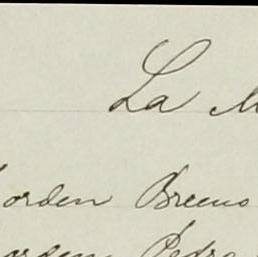 La
orden Breeno
orden Pedro